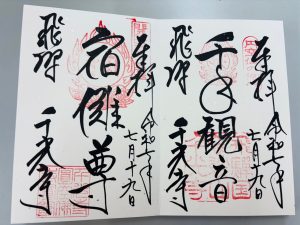 奉拝 令和七年
七月十九日
千手観音
飛騨 千光寺
奉拝 令和七年
七月十九日
宿儺尊
飛騨 千光寺